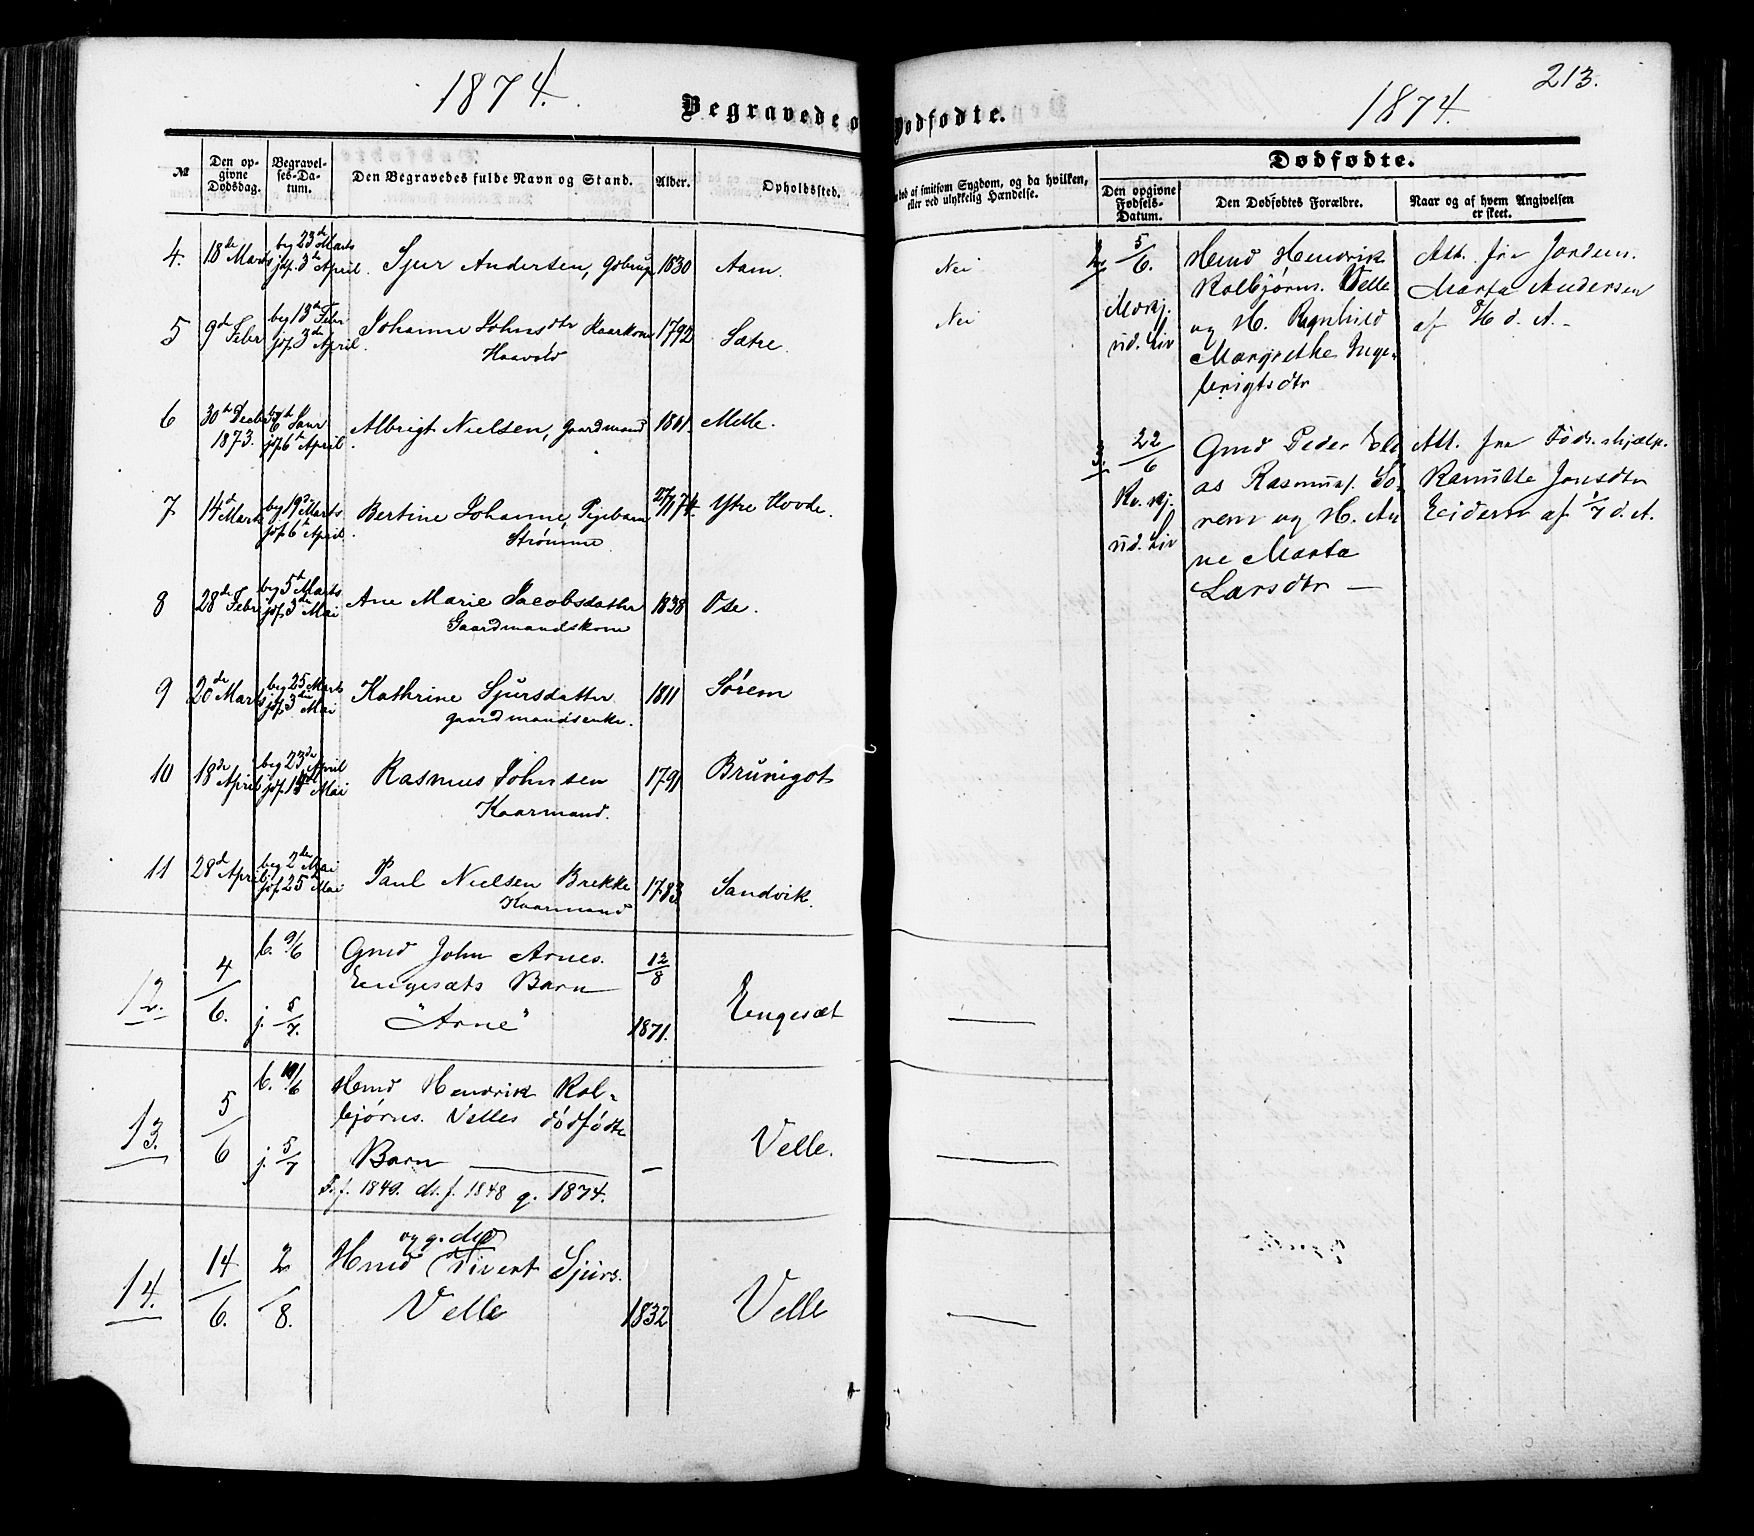 1874.
Begravede o
№
Den opgivne Dødsdag.
Begravelses-Datum.
Den Begravedes fulde Navn og Stand.
Alder.
Opholdssted.
4. 18de Marts beg 23de Marts Sjur Andersen, 1830 Aam.
jdf. 3de April.
5 9de Febr beg 13de Febr Johanne Johnsdtr Kaarkone 1792 Sætre.
jdf. 3de April Haavold
6 30te Decbr 6te Janr Albrigt Nielsen, Gaardmand 1801. Melle.
1873. jdf 6te April
7 14de Marts beg 19de Marts Bertine Johanne, Pigebarn 27/1 74. Ytre Hovde.
jdf. 6te April Strømme
8 28de Febr beg 5te Marts Ane Marie Jacobsdatter 1838 Ose.
jdf. 3de Mai Gaardmandskone
9 20de Marts beg 25 Marts Kathrine Sjursdatter 1811 Sørem
jdf 3die Mai gaardmandsenke.
10 18de April beg 23de April Rasmus Johnsen 1791 Brungot
jdf. Mai Kaarmand.
11 28de April beg 2den Mai Paul Nielsen Brekke 1783 Sandvik.
jdf. 25de Mai Kaarmand
12. 4/6. b. 9/6 Gmd John Arnes. 12/8
Engesæts Barn
j. 5/7. "Arne" 1871. Engesæt
13. 5/6 b. 10/6 Hmd Hendrik Kol-
bjørns. Velles dødfødte
j. 5/7 Barn — — Velle.
F. f. 1849. M. f. 1848 g. 1874.
14. 14/6. 2/8. og g.
Hmd Sivert Sjurs.
Velle 1832 Velle
213.
1874.
Dødfødte.
ved af smitsom Sygdom, og da hvilken, eller ved ulykkelig Hændelse.
Dødfødte.
Den opgivne Fødsels-Datum.
Den Dødfødtes Forældre.
Naar og af hvem Angivelsen er skeet.
Nei 2. 5/6. Hmd Hendrik Att. fra Jordem.
Kolbjørns. Velle Marta Andersen
Nei og H. Ragnhild af d. A. -
ud. Liv Margrethe Inge-
brigtsdtr
3. 22/6 Gmd Peder Eli Att. fra Føds.hjælp.
as Rasmus. Sø- Jonsdtr
rem og H. An Eidem af 1/7 d. A.
ud. Liv ne Marta
Larsdtr —